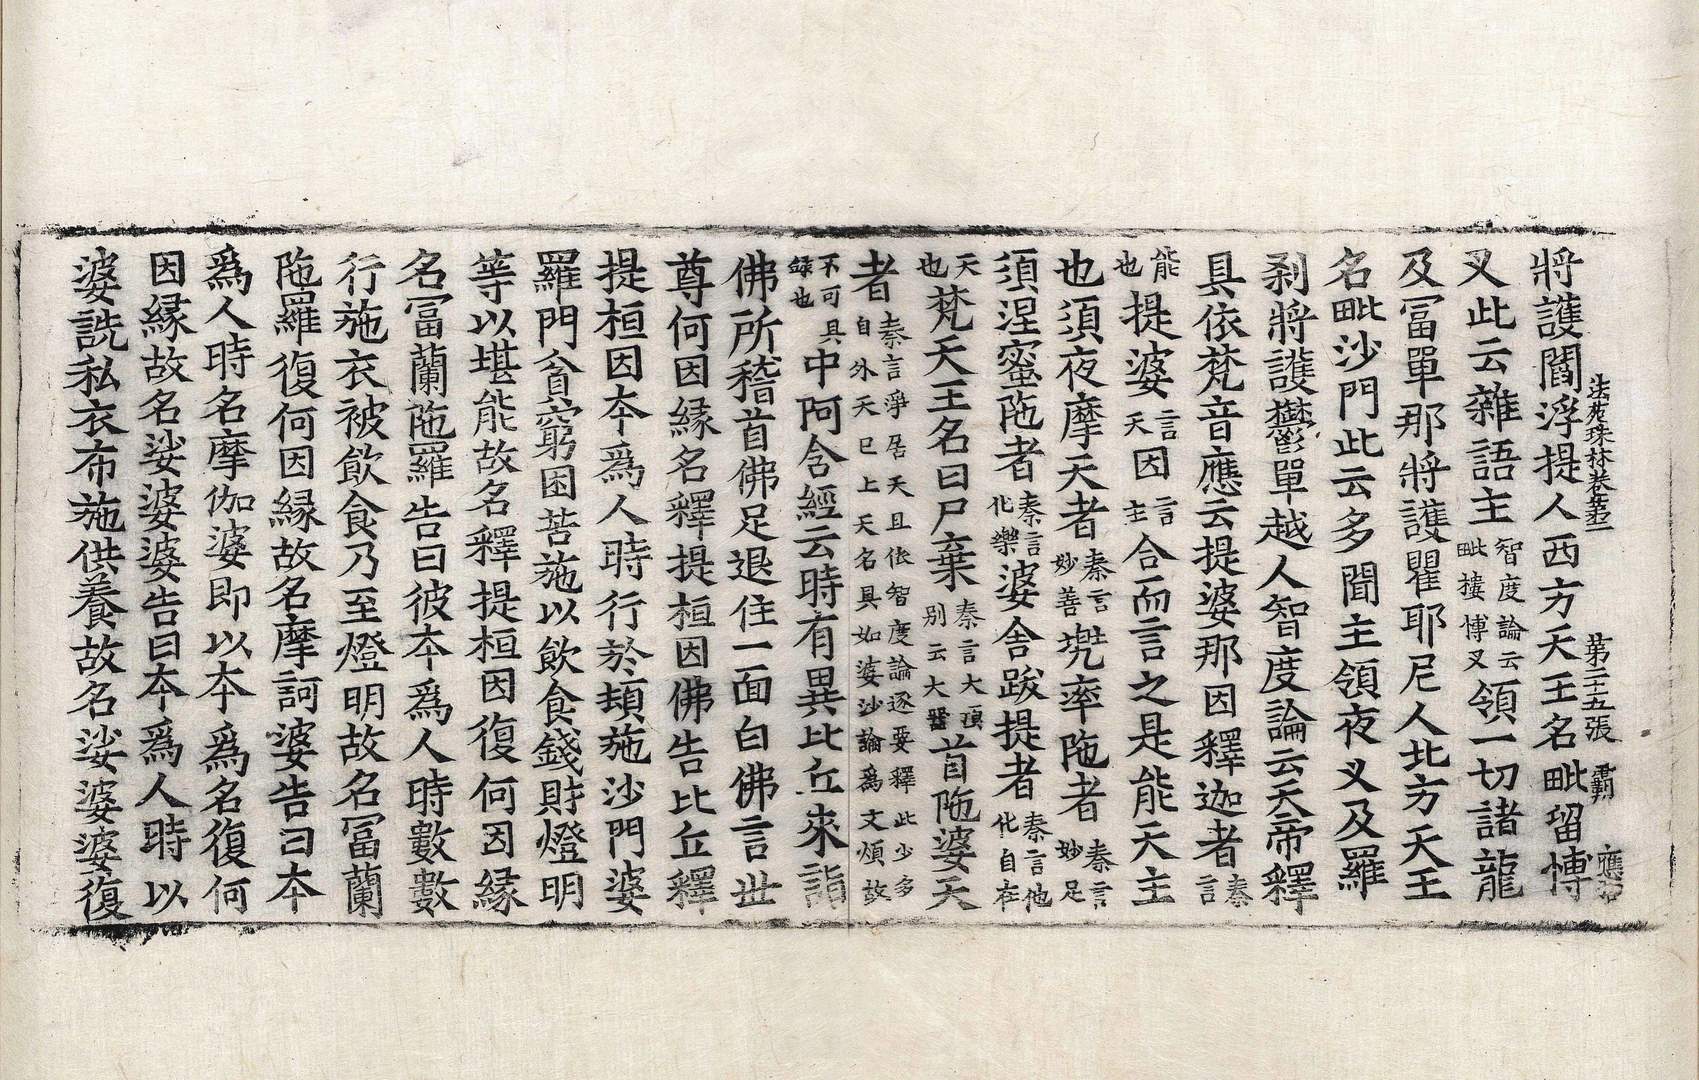 法苑珠林卷第 第二十五張 霸
將護閻浮提人西方天王名毗留愽
叉此云雜語主智度論云毗樓愽叉領一切諸龍
及冨單那將護瞿耶尼人北方天王
名毗沙門此云多聞主領夜叉及羅
剎將護欝單越人智度論云天帝釋
具依梵音應云提婆那因釋迦者秦言
能也提婆言天因言主合而言之是能天主
也須夜摩天者秦言妙善兠率陁者秦言妙足
須涅蜜陁者秦言化樂婆舍跋提者秦言他化自在
天也梵天王名曰尸棄秦言大頂別云大器首陁婆天
者秦言淨居天且依智度論逐要釋此少多自外天已上天名具如婆沙論爲文煩故
不可具録也中阿含經云時有異比丘來詣
佛所稽首佛足退住一面白佛言世
尊何因緣名釋提桓因佛告比丘釋
提桓因本爲人時行於頓施沙門婆
羅門貧窮困苦施以飲食錢財燈明
等以堪能故名釋提桓因復何因緣
名冨蘭陁羅告曰彼本爲人時數數
行施衣被飲食乃至燈明故名冨蘭
陁羅復何因緣故名摩訶婆告曰本
爲人時名摩伽婆即以本爲名復何
因緣故名娑婆婆告曰本爲人時以
婆詵私衣布施供養故名娑婆婆復